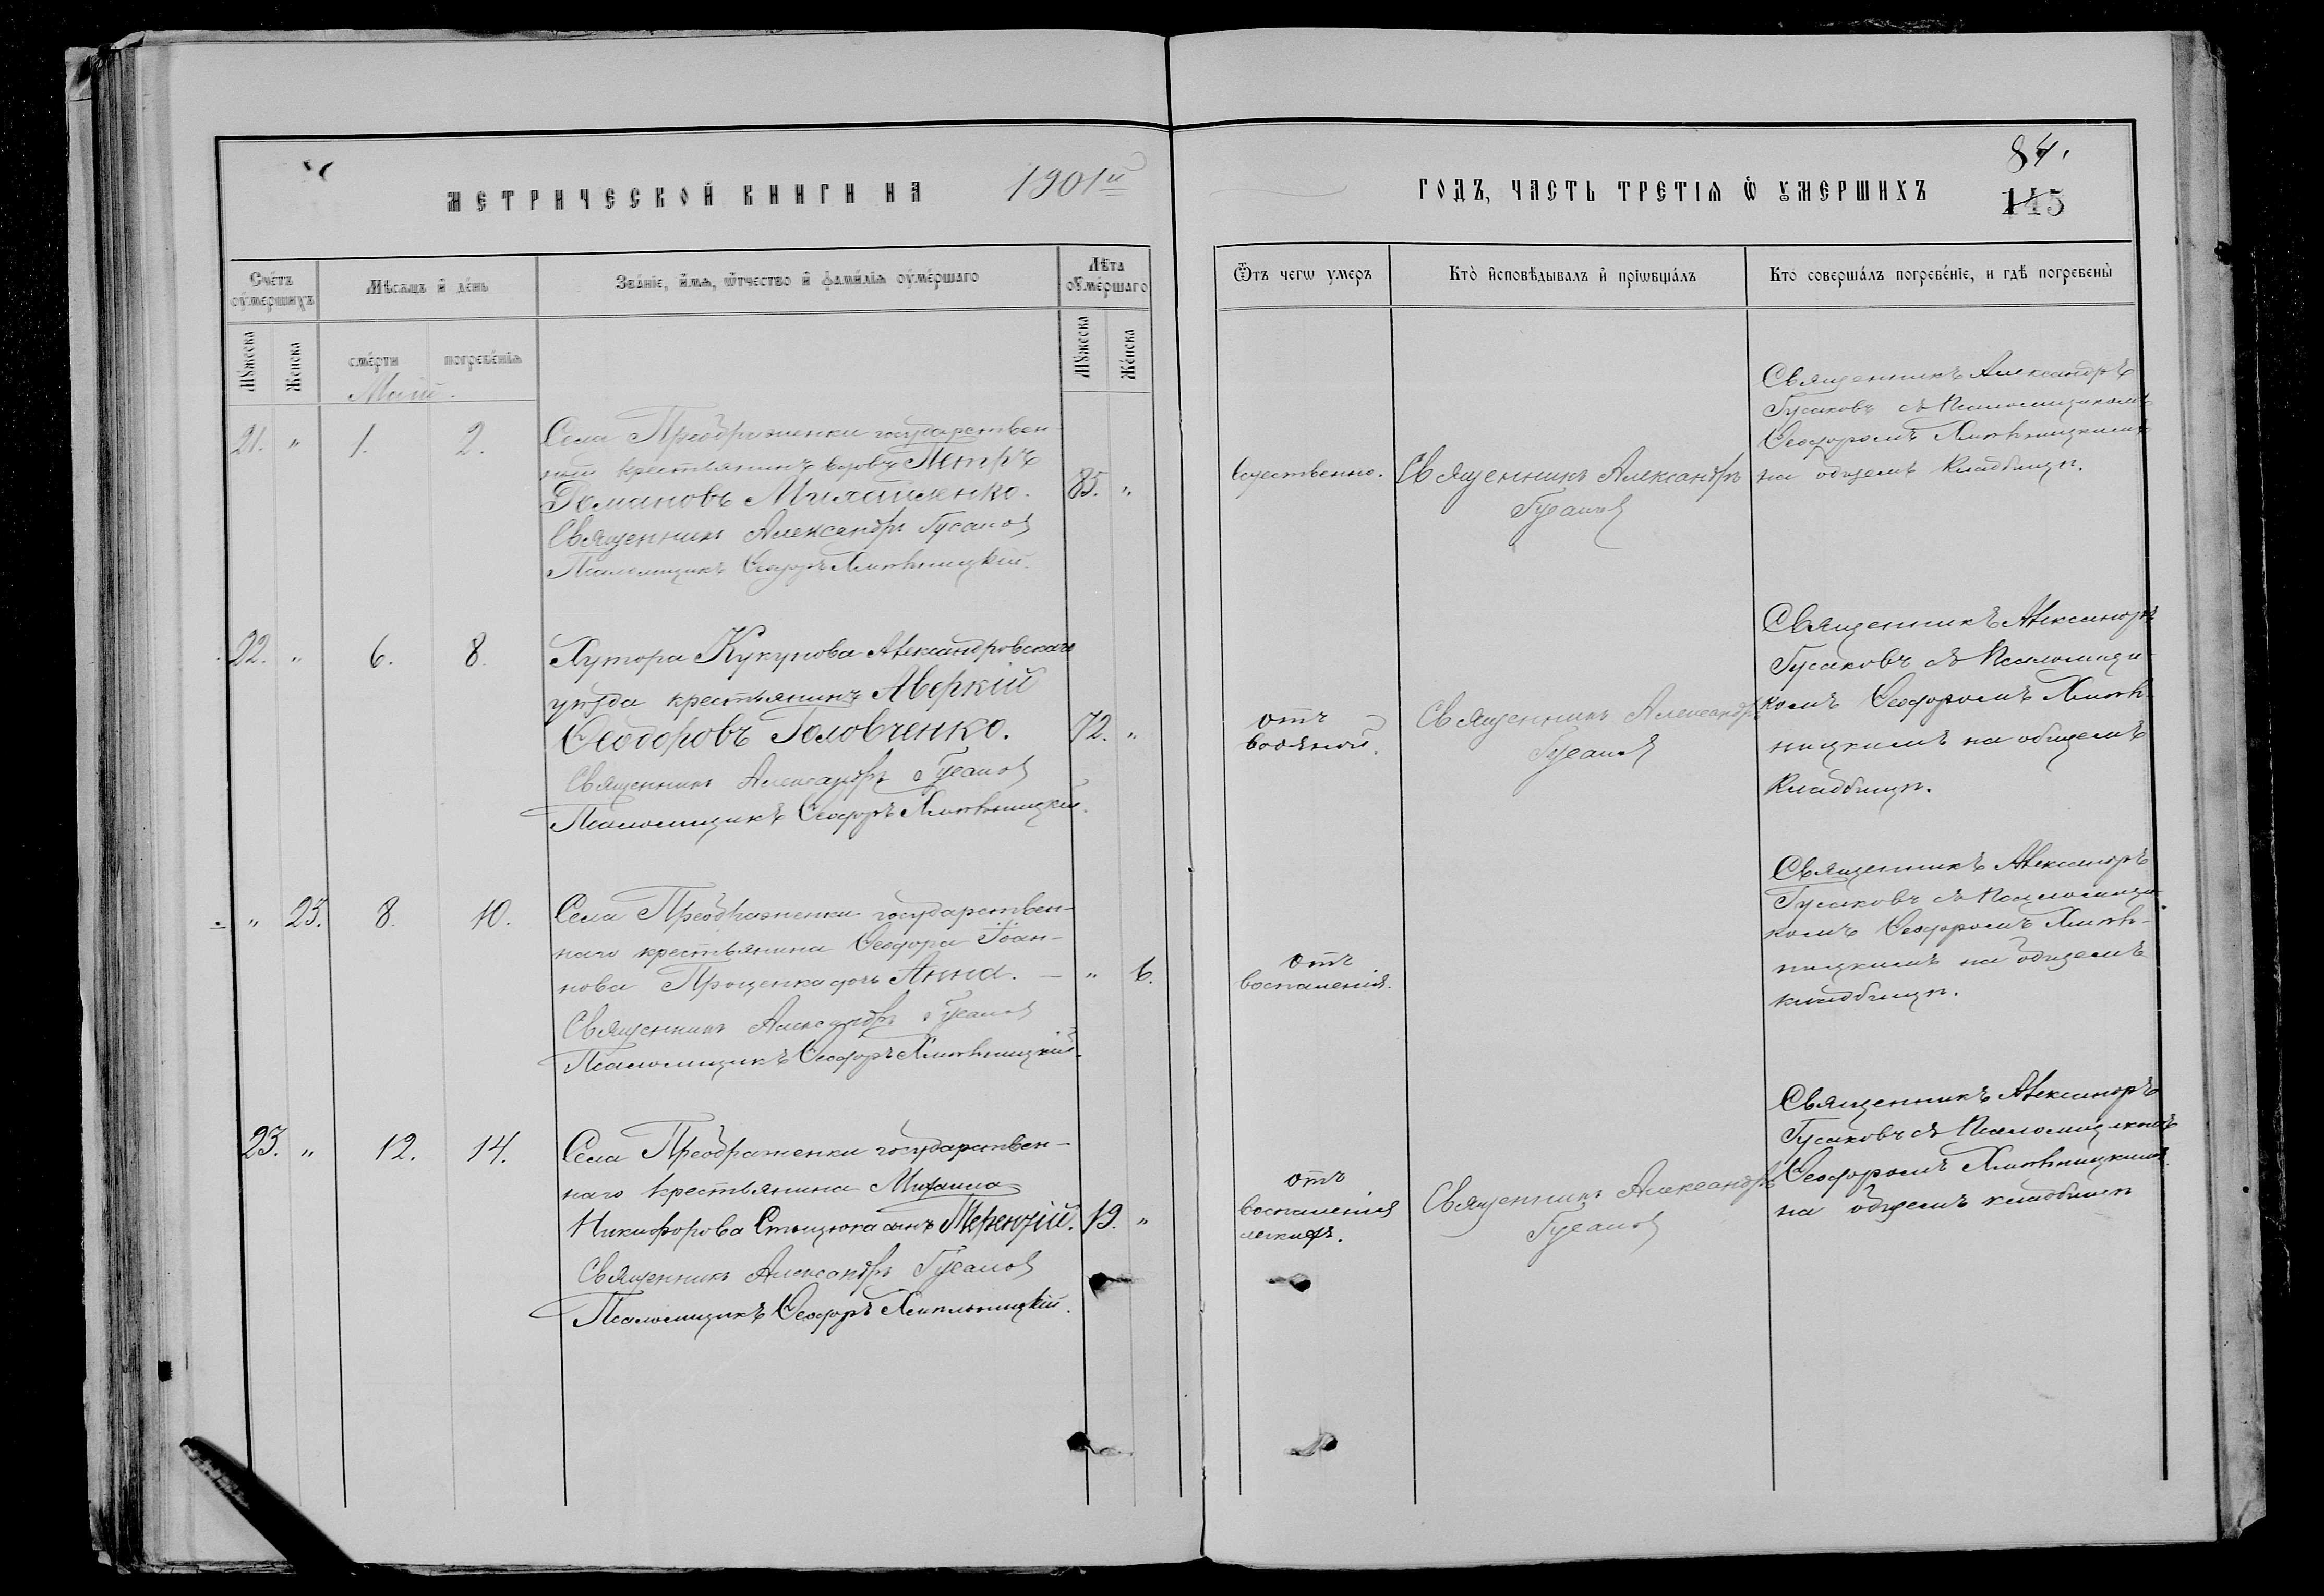 МЕТРИЧЕСКОЙ КНИГИ НА 1901й
ГОДЪ, ЧАСТЬ ТРЕТІЯ Ѡ УМЕРШИХЪ
84.
145
Счетъ оумершихъ
Мѣсяцъ и день
Званіе, имя, ѿчество и фамиліа оумершаго
Лѣта оумершаго
Мужеска
Женска
смерти
погребеніа
Мужеска
Женска
Ѿтъ чегѡ умеръ
Кто исповѣдывалъ и пріѡбщалъ
Кто совершалъ погребеніе, и гдѣ погребены
Маій.
21. „ 1. 2.
Села Преображенки государствен-
ный крестьянинъ вдовъ Петръ
Романовъ Михайленко. 85. „
Священникъ Александръ Гусаков
Псаломщикъ Ѳеодоръ
Естественно.
Священникъ Александръ
Гусаков
Священникъ Александръ
Гусаковъ съ Псаломщикомъ
Ѳеодоромъ
на общемъ кладбищѣ.
22. „ 6. 8.
Хутора Кукунова Александровскаго
уѣзда крестьянинъ Аверкій
Ѳеодоровъ Головченко. 72. „
Священникъ Александръ Гусаков
Псаломщикъ Ѳеодоръ
отъ
водяной.
Священникъ Александръ
Гусаков
Священникъ Александръ
Гусаковъ съ Псаломщи-
комъ Ѳеодоромъ
на общемъ
кладбищѣ.
„ 23. 8. 10.
Села Преображенки государствен-
наго крестьянина Ѳеодора Іоан-
нова Проценка дочь Анна. — „ 6.
Священникъ Александръ Гусаков
Псаломщикъ Ѳеодоръ
отъ
воспаленія.
Священникъ Александръ
Гусаковъ съ Псаломщи-
комъ Ѳеодоромъ
на общемъ
кладбищѣ.
23. „ 12. 14.
Села Преображенки государствен-
наго крестьянина Михаила
Никифорова Стыцюка сынъ Терентій. 19. „
Священникъ Александръ Гусаков
Псаломщикъ Ѳеодоръ
отъ
воспаленія
легкихъ.
Священникъ Александръ
Гусаков
Священникъ Александръ
Гусаковъ съ Псаломщикомъ
Ѳеодоромъ
на общемъ кладбищѣ